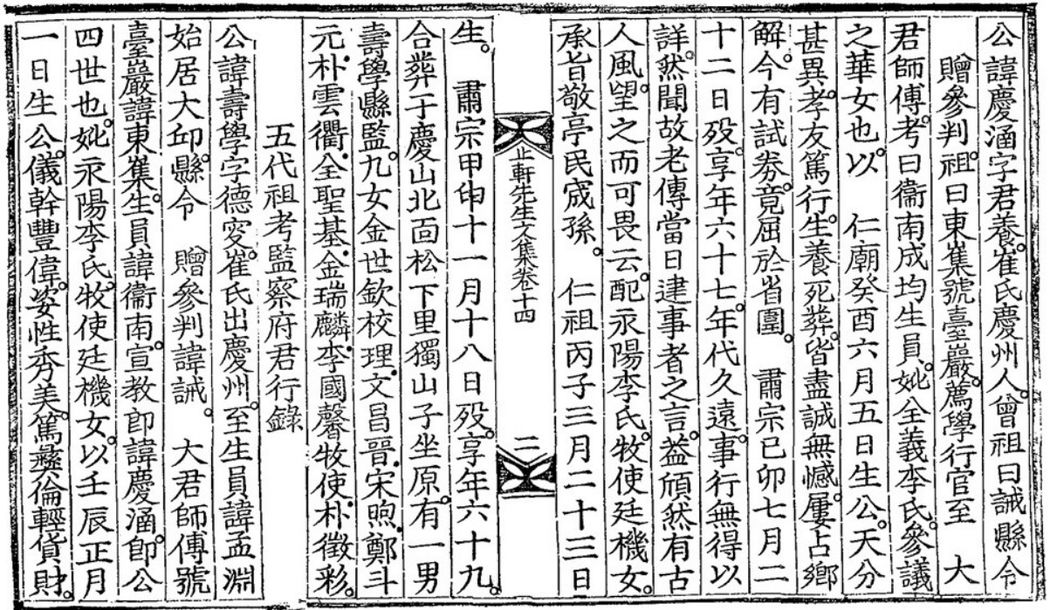 公諱慶涵字君養崔氏慶州人曾祖曰誡縣令
贈參判祖曰東𡻕號臺巖薦學行官至　大
君師傅考曰衞南成均生員妣全義李氏參議
之華女也以　仁廟癸酉六月五日生公天分
甚異孝友篤行生養死葬皆盡誠無憾屢占鄕
解今有試券竟屈於省圍　肅宗己卯七月二
十二日歿享年六十七年代久遠事行無得以
詳然聞故老傳當日逮事者之言益頎然有古
人風望之而可畏云配永陽李氏牧使廷機女
承旨敬亭民宬孫　仁祖丙子三月二十三日
止軒先生文集卷十四　二
生　肅宗甲申十一月十八日歿享年六十九
合葬于慶山北面松下里獨山子坐原有一男
壽學縣監九女金世欽校理文昌晋宋煦鄭斗
元朴雲衢全聖基金瑞麟李國馨牧使朴徵彩
五代祖考監察府君行錄
公諱壽學字德叜崔氏出慶州至生員諱孟淵
始居大邱縣令　贈參判諱誡　大君師傅號
臺巖諱東𡻕生員諱衞南宣敎郞諱慶涵卽公
四世也妣永陽李氏牧使廷機女以壬辰正月
一日生公儀幹豐偉姿性秀美篤彝倫輕貨財